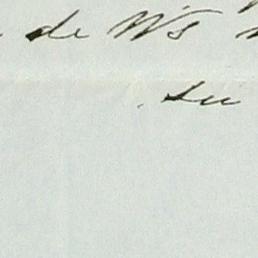 de W's
Su